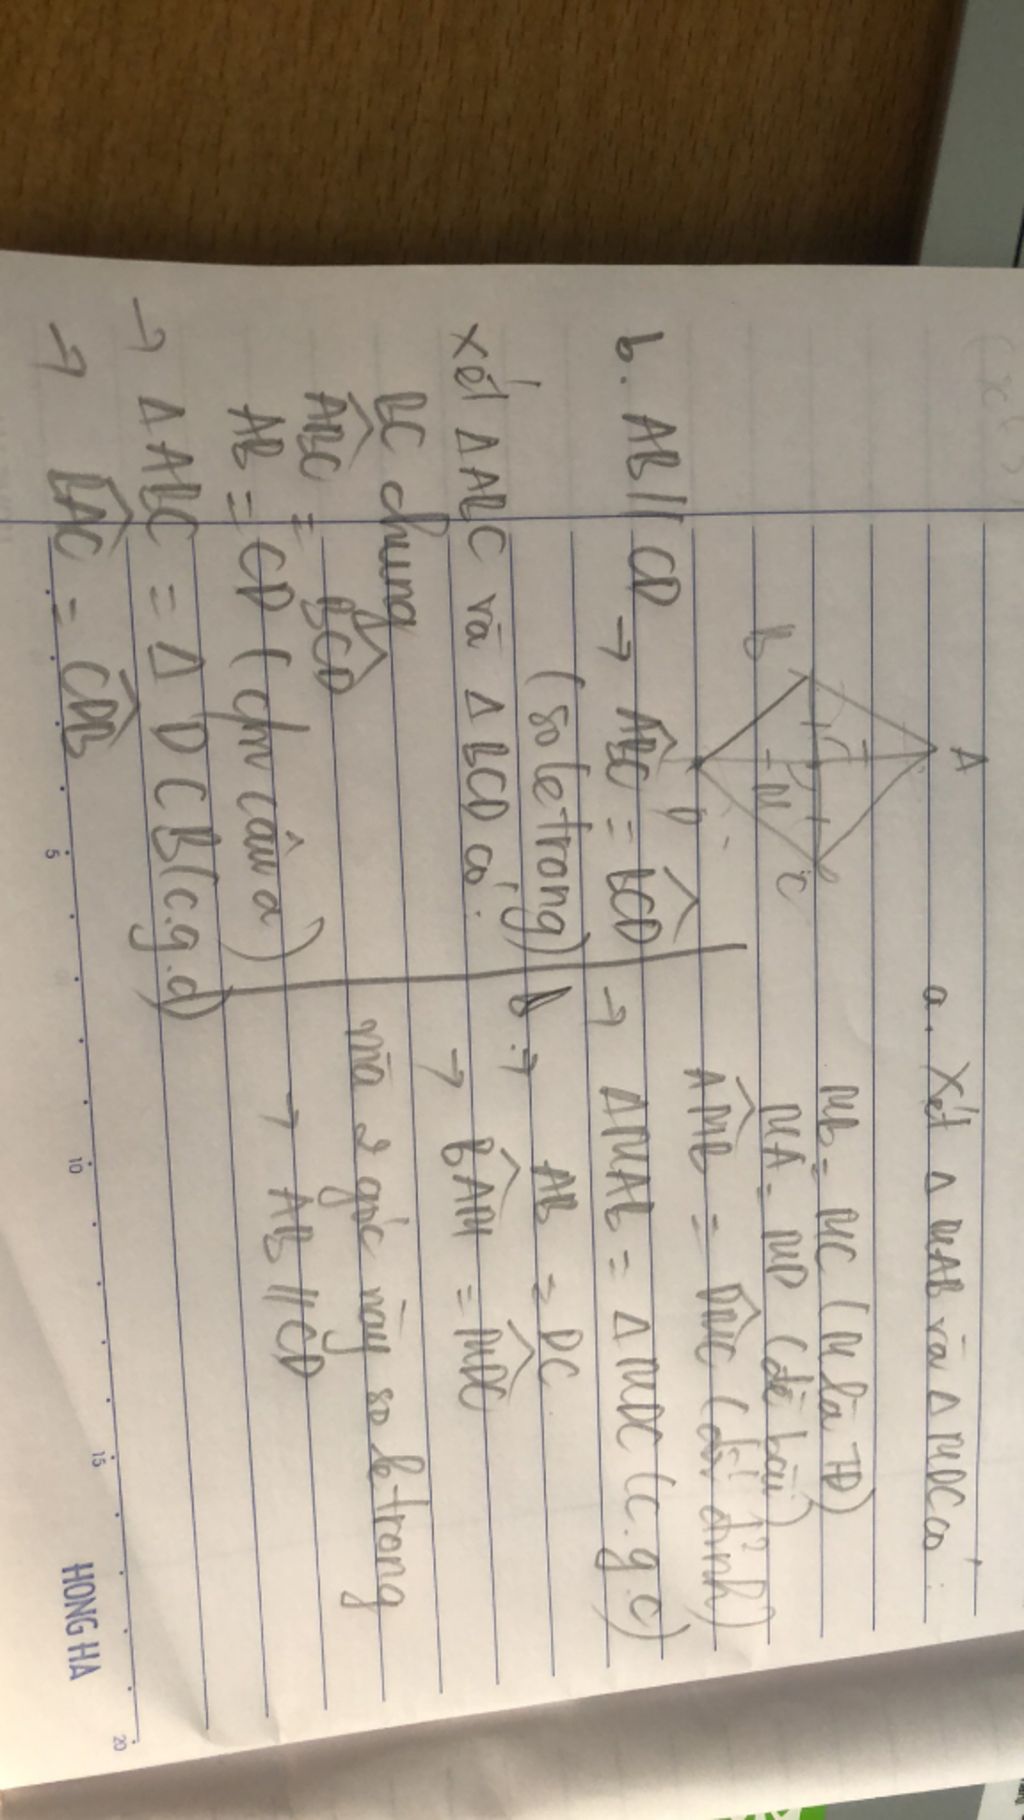 A
B
M
C
D
a. Xét Δ MAB và Δ MDC có:
MB = MC (M là TĐ)
MA = MD (đề bài)
\widehat{AMB} = \widehat{DMC} (đối đỉnh)
→ Δ MAB = Δ MDC (c.g.c)
→ AB = DC
→ \widehat{BAM} = \widehat{MDC}
mà 2 góc này so le trong
→ AB // CD
b. AB // CD → \widehat{ABC} = \widehat{BCD}
(so le trong)
xét Δ ABC và Δ BCD có:
BC chung
\widehat{ABC} = \widehat{BCD}
AB = CD (cm câu a)
→ Δ ABC = Δ DCB (c.g.c)
→ \widehat{BAC} = \widehat{CDB}
5
10
15
20
HONG HA